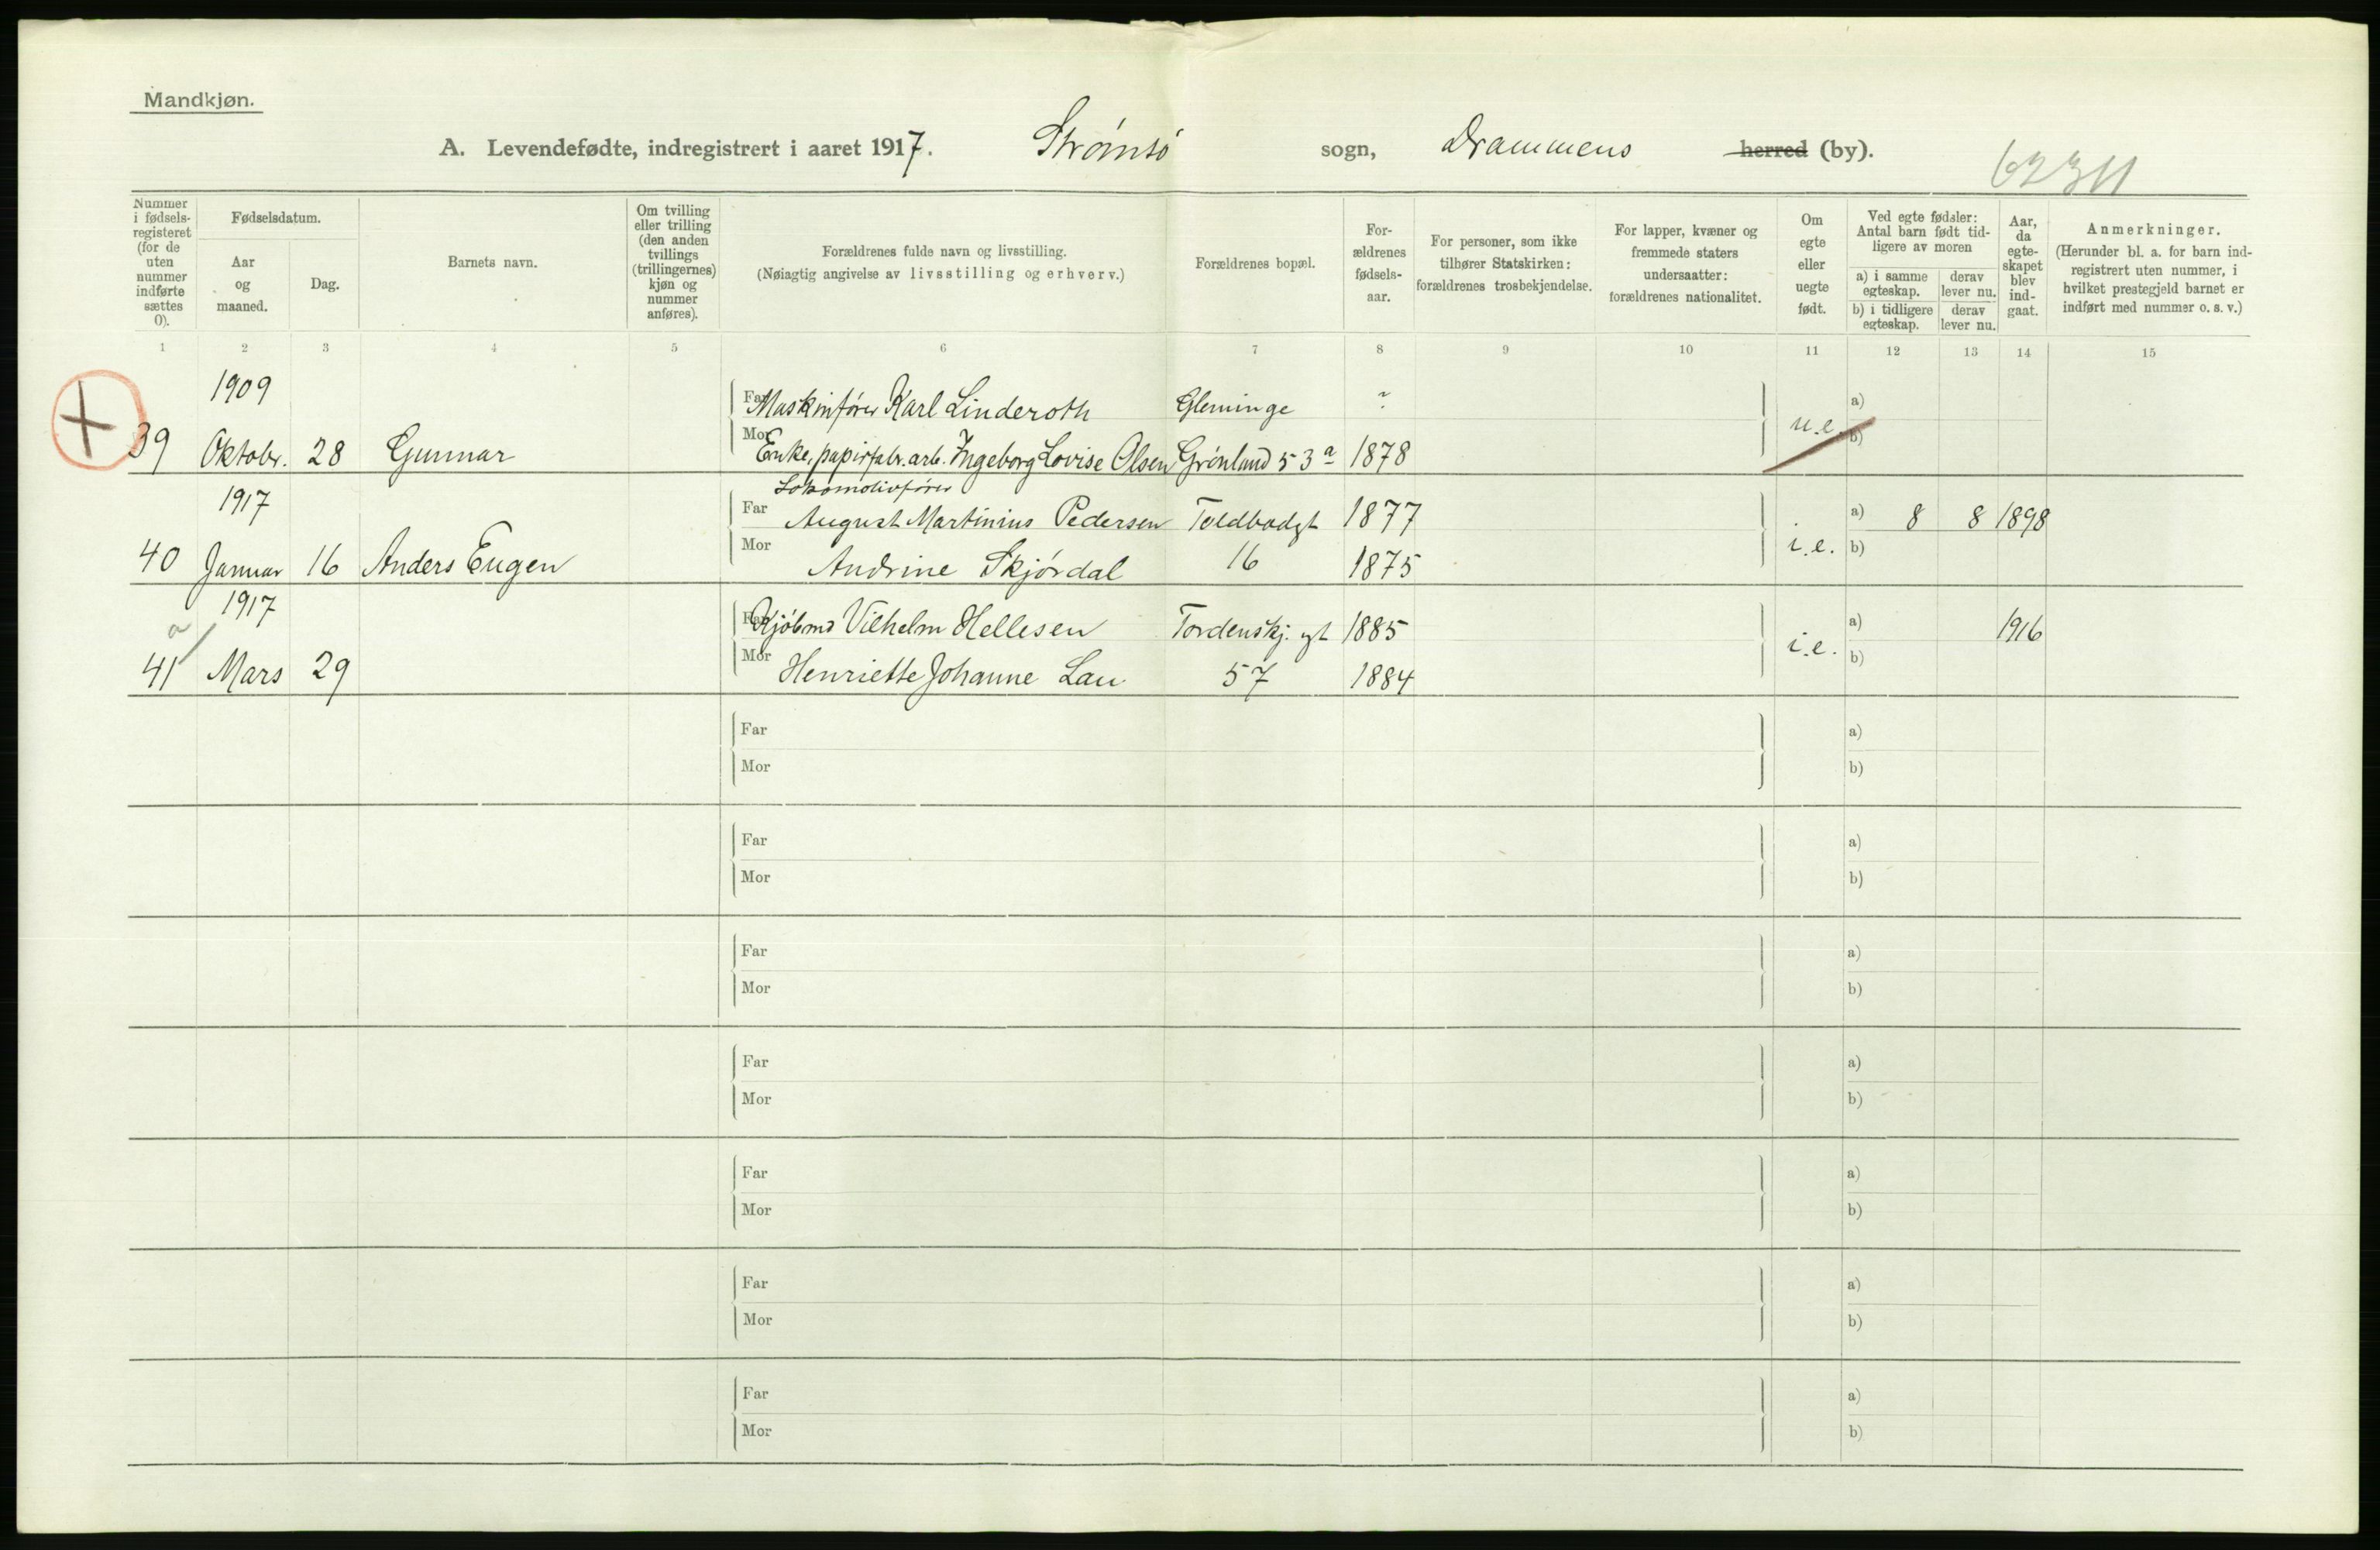 Mandkjøn.
A. Levendefødte, indregistrert i aaret 1917. Strømsö sogn, Drammens herred (by).
Nummer i fødsels-registeret (for de uten nummer indførte sættes 0).
Fødselsdatum.
Aar og maaned.
Dag.
Barnets navn.
Om tvilling eller trilling (den anden tvillings (trillingernes) kjøn og nummer anføres).
Forældrenes fulde navn og livsstilling.
(Nøiagtig angivelse av livsstilling og erhverv.)
Forældrenes bopæl.
For-ældrenes fødsels-aar.
For personer, som ikke tilhører Statskirken: forældrenes trosbekjendelse.
For lapper, kvæner og fremmede staters undersaatter: forældrenes nationalitet.
Om egte eller uegte født.
Ved egte fødsler: Antal barn født tid-ligere av moren
a) i samme egteskap. derav lever nu.
b) i tidligere egteskap. derav lever nu.
Aar, da egte-skapet blev ind-gaat.
Anmerkninger.
(Herunder bl. a. for barn ind-registrert uten nummer, i hvilket prestegjeld barnet er indført med nummer o. s. v.)
1 2 3 4 5 6 7 8 9 10 11 12 13 14 15
1909
Far Maskinfører Karl Linderoth Gleminge ? a)
39 Oktobr. 28 Gunnar Mor Enke, papirfabr. arb. Ingeborg Lovise Olsen Grönland 53 a 1878 u.e. b)
1917 Lokomotivfører
Far August Martinius Pedersen Toldbodgt 1877 a) 8 8 1898
40 Januar 16 Anders Eugen Mor Andrine Skjördal 16 1875 i.e. b)
1917
Far Kjöbmd Vilhelm Hellesen Tordenskj. gt 1885 a) 1916
41 Mars 29 Mor Henriette Johanne Lau 57 1884 i.e. b)
Far a)
Mor b)
Far a)
Mor b)
Far a)
Mor b)
Far a)
Mor b)
Far a)
Mor b)
Far a)
Mor b)
Far a)
Mor b)